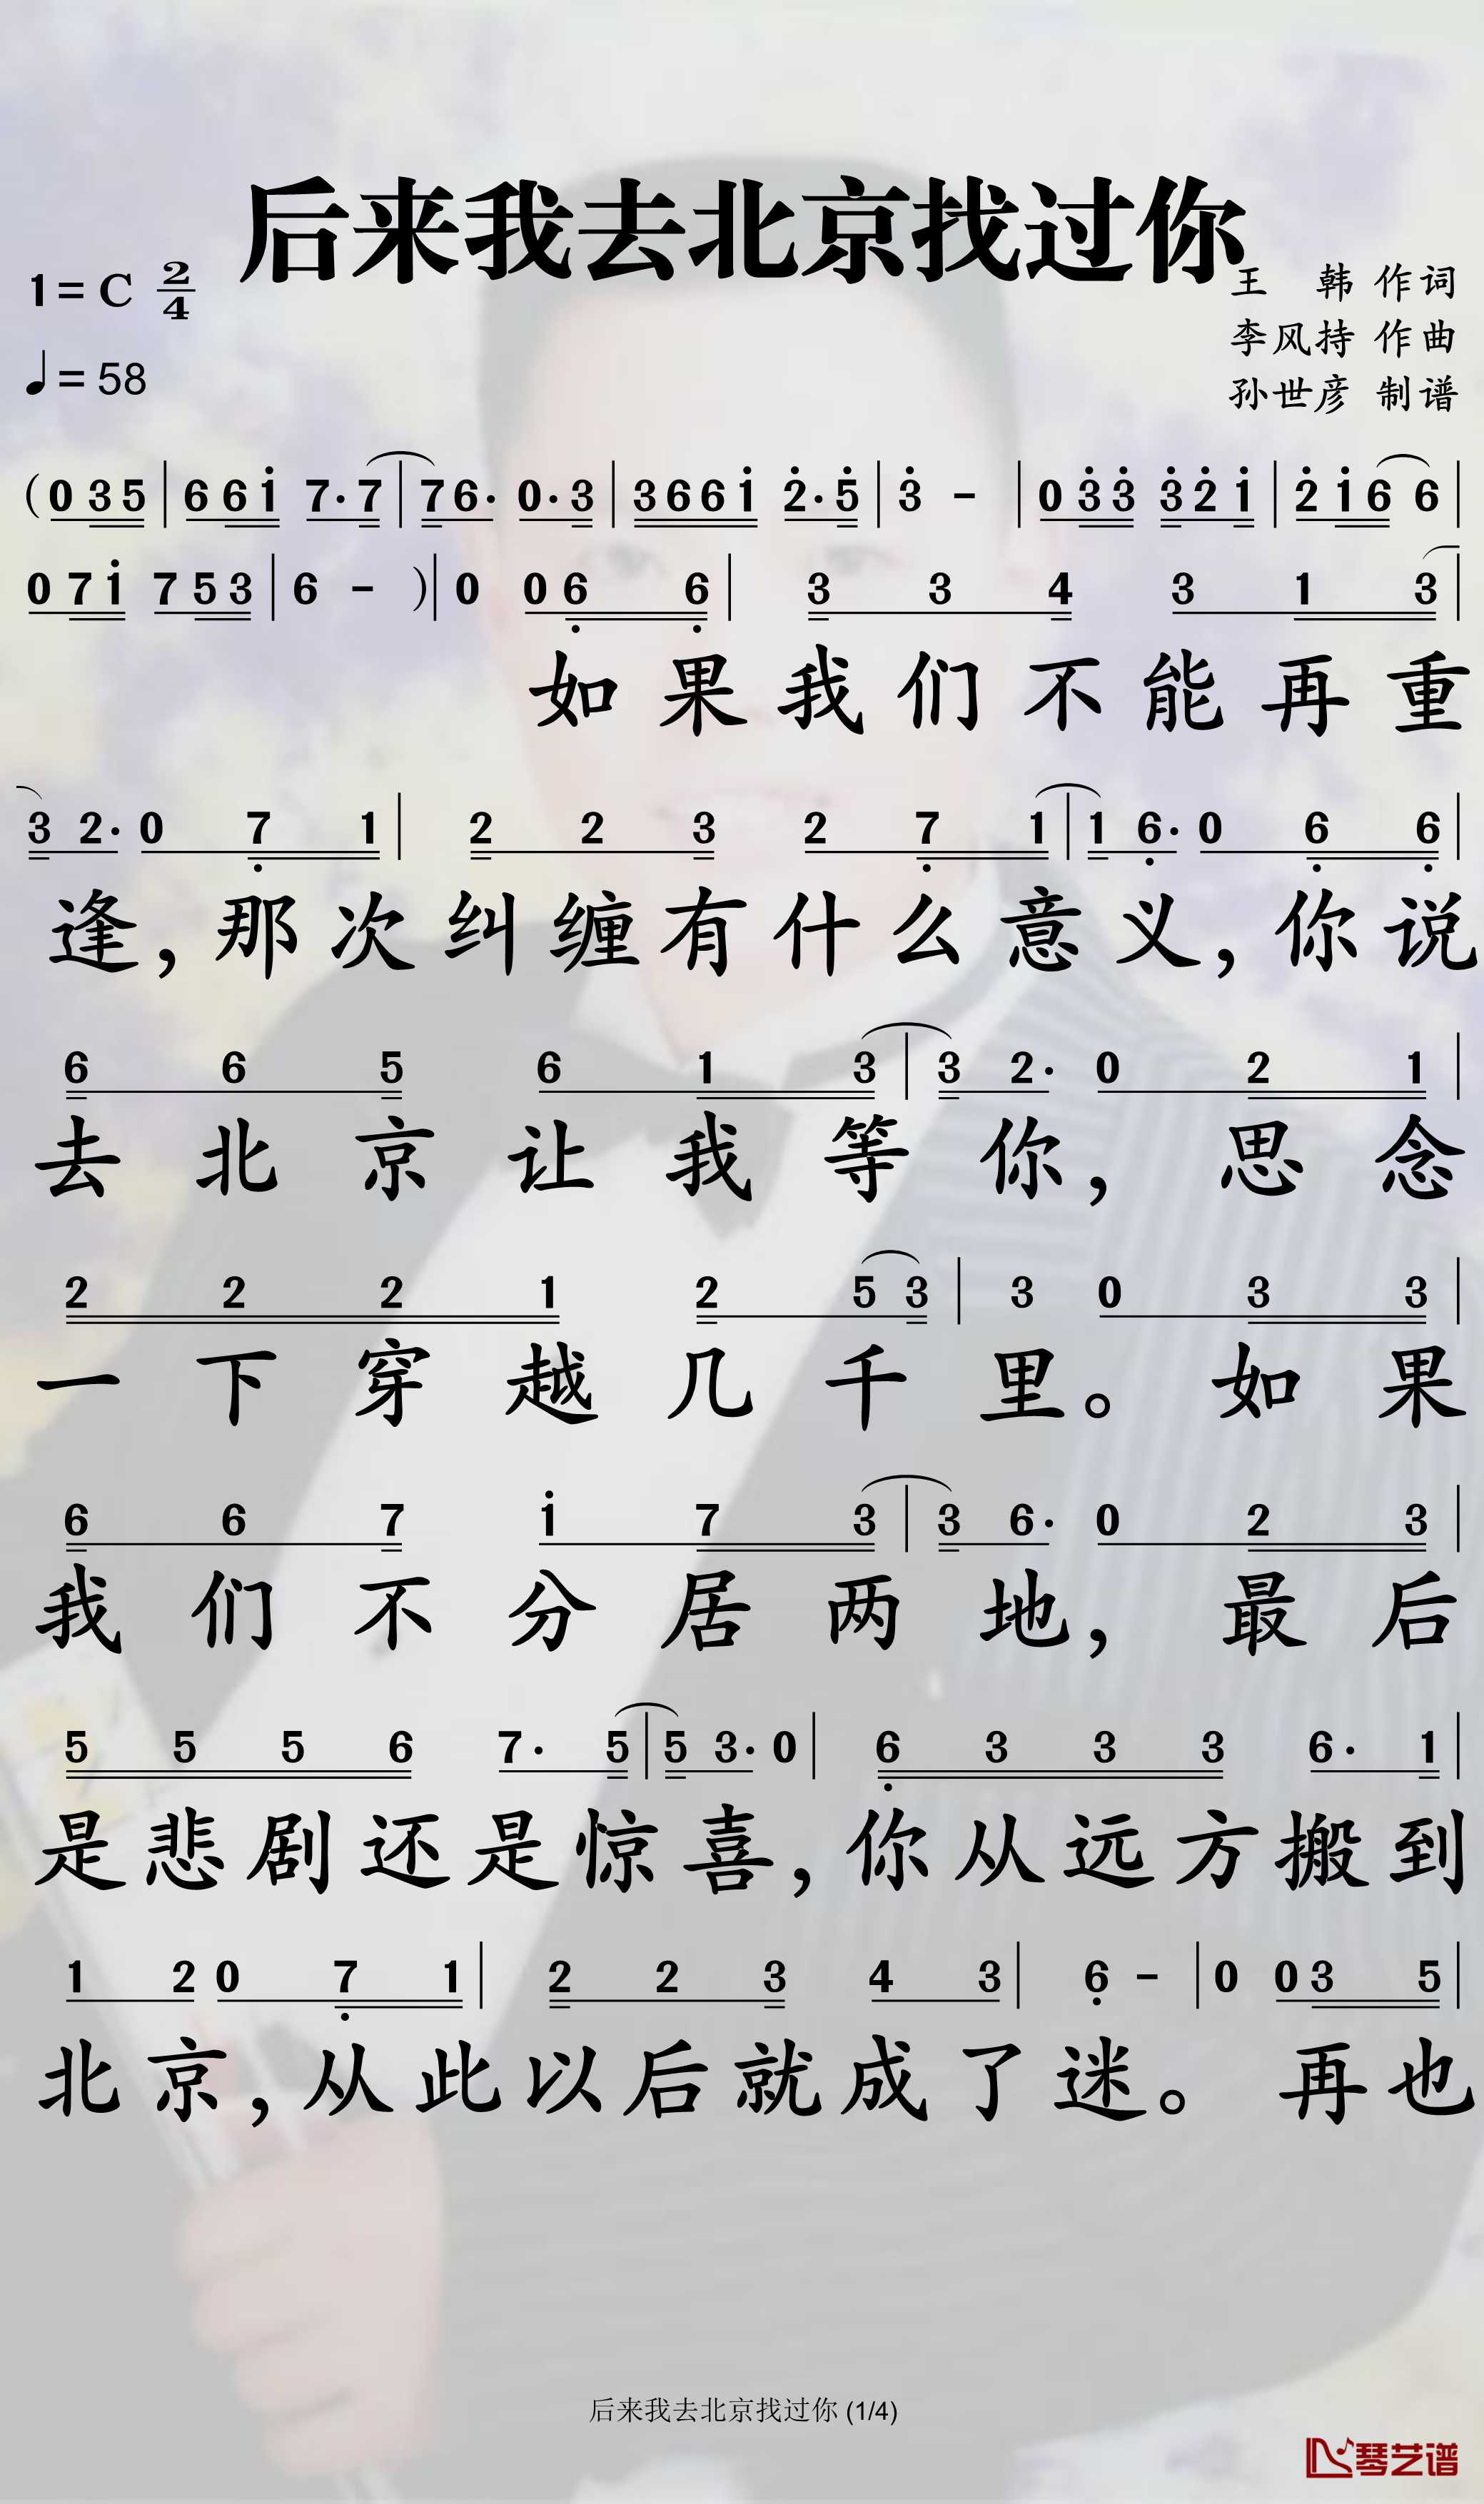 后来我去北京找过你
1=C 2/4
♩=58
王 韩 作词
李风持 作曲
孙世彦 制谱
(0 3 5 | 6 6 i̇ 7· 7 | 7 6· 0· 3 | 3 6 6 i̇ 2̇· 5̇ | 3̇ - | 0 3̇ 3̇ 3̇ 2̇ i̇ | 2̇ i̇ 6 6 |
0 7 i̇ 7 5 3 | 6 - )| 0 0 6̣ 6̣ | 3 3 4 3 1 3 |
如果我们不能再重
3 2· 0 7̣ 1 | 2 2 3 2 7̣ 1 | 1 6̣· 0 6̣ 6̣ |
逢，那次纠缠有什么意义，你说
6 6 5 6 1 3 | 3 2· 0 2 1 |
去北京让我等你，思念
2 2 2 1 2 5 3 | 3 0 3 3 |
一下穿越几千里。如果
6 6 7 i̇ 7 3 | 3 6· 0 2 3 |
我们不分居两地，最后
5 5 5 6 7· 5 | 5 3· 0 | 6̣ 3 3 3 6· 1 |
是悲剧还是惊喜，你从远方搬到
1 2 0 7̣ 1 | 2 2 3 4 3 | 6̣ - | 0 0 3 5 |
北京，从此以后就成了迷。再也
后来我去北京找过你 (1/4)
琴艺谱